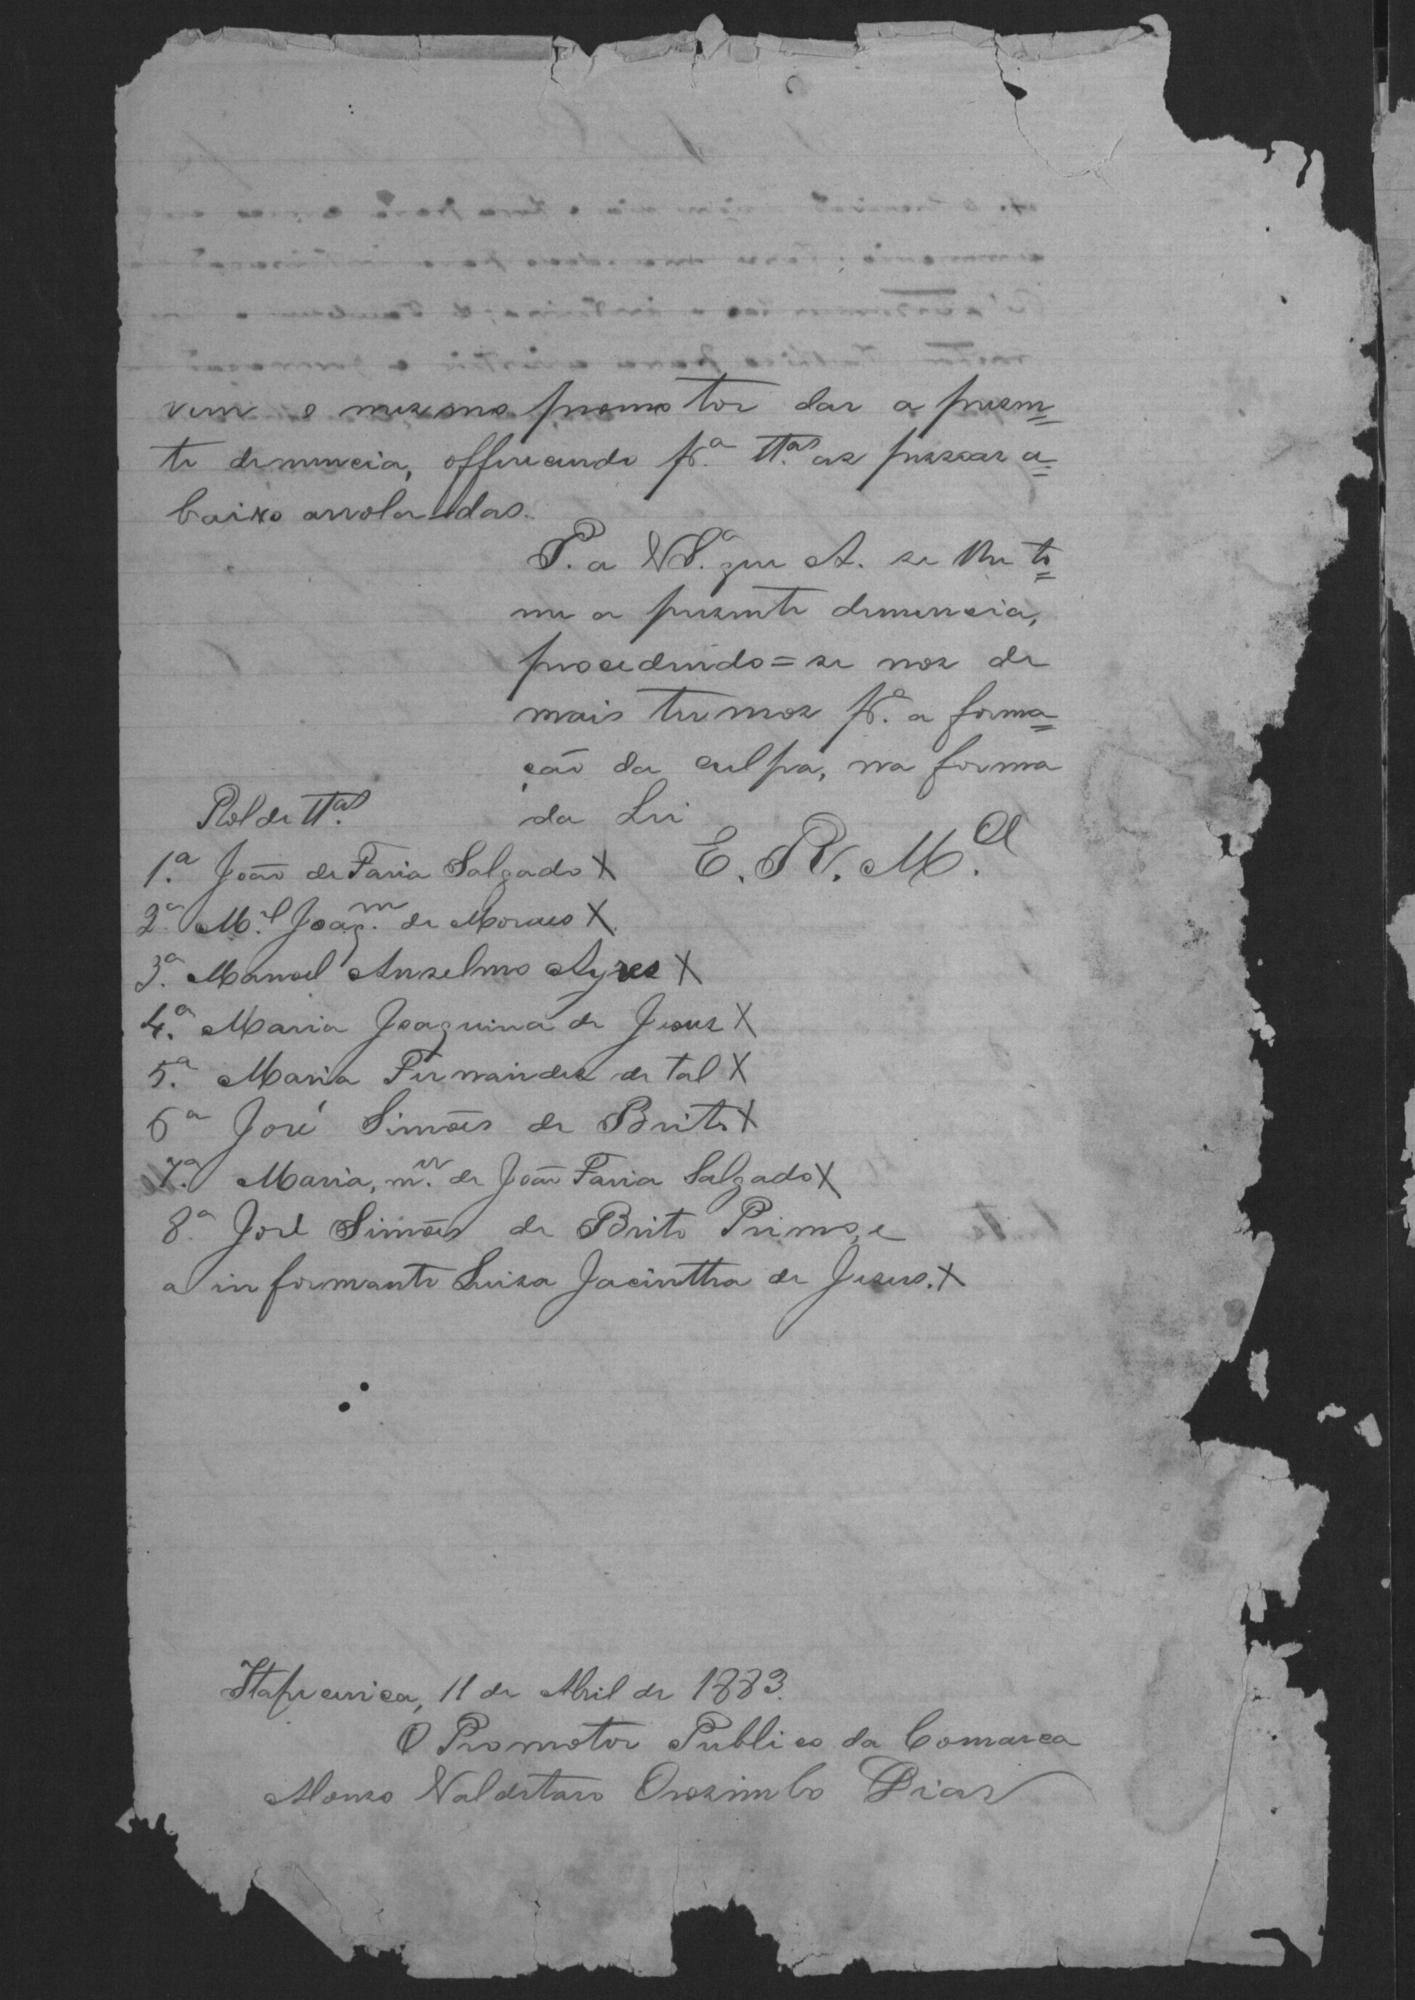 vem o mesmo promotor dar a presen=
te denuncia, offerecendo p.ª tt.as as pessoas a=
baixo arroladas.
P. a V S.ª que A. se lhe to=
me a presente denuncia,
procedendo=se nos de
mais termos p.ª a forma=
ção da culpa, na forma
da Lei
E. R. M.cê
Rol de tt.as
1.ª João de Faria Salgado X
2.ª M.el Joaq.m de Moraes X
3.ª Manoel Anselmo Ayres X
4.ª Maria Joaquina de Jesus X
5.ª Maria Fernandes de tal X
6ª José Simões de Brito X
7.ª Maria, m.er de João Faria Salgado X
8.ª José Simões de Brito Primo, e
a informante Luiza Jacinttha de Jesus. X
Itapecerica, 11 de Abril de 1883.
O Promotor Publico da Comarca
Alonso Valdetaro Orozimbo Dias